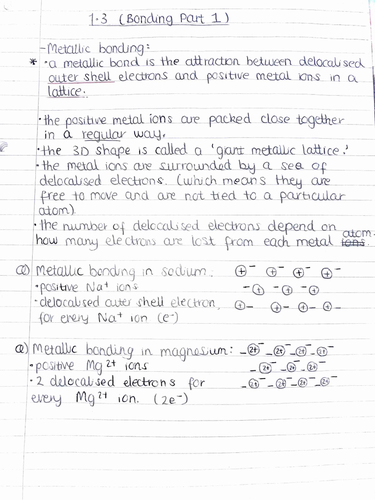 1.3 (Bonding Part 1)
-Metallic bonding:
* •a metallic bond is the attraction between delocalised
outer shell electrons and positive metal ions in a
lattice.
•the positive metal ions are packed close together
in a regular way.
•the 3D shape is called a 'giant metallic lattice.'
•the metal ions are surrounded by a sea of
delocalised electrons. (which means they are
free to move and are not tied to a particular
atom)
•the number of delocalised electrons depend on
how many electrons are lost from each metal ions. atom.
Q) Metallic bonding in sodium. + - + - + - + -
•positive Na+ ions - + - + - +
•delocalised outer shell electron. + - + - + - + -
for every Na+ ion (e-)
Q) Metallic bonding in magnesium: - 2+ - - 2+ - - 2+ - - 2+ -
•positive Mg2+ ions - 2+ - - 2+ - - 2+ -
•2 delocalised electrons for - 2+ - - 2+ - - 2+ - - 2+ -
every Mg2+ ion. (2e-)